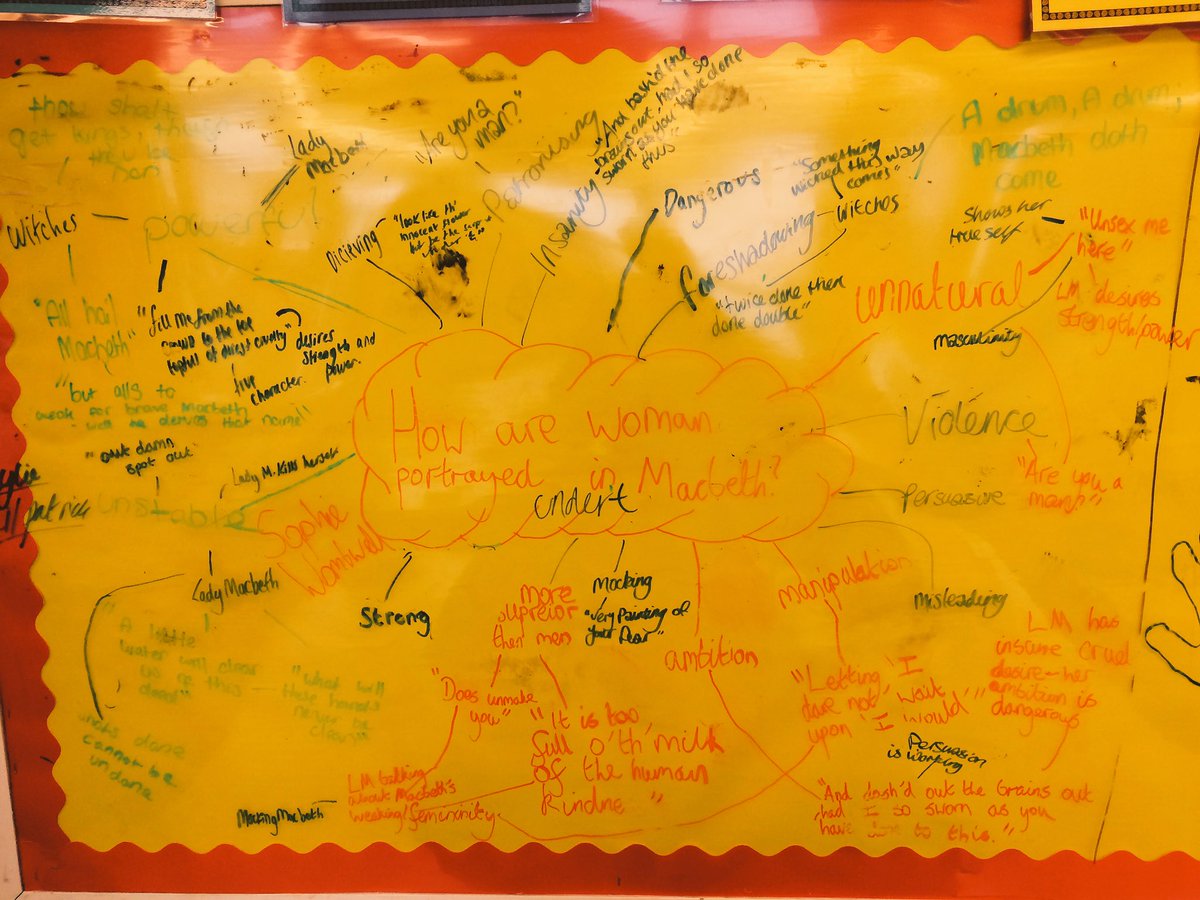 thou shalt
get kings, though
thou be
non
Witches
powerful
Lady
Macbeth
"Are you a
man?"
Patronising
Insanity
"And bash'd the
brains out, had I so
sworn as you have done
this"
Dicieving
"look like th'
innocent flower
but be the
Dangerous
"Something
wicked this way
comes"
foreshadowing
Witches
"twice done then
done double"
A drum, A drum,
Macbeth doth
come
Shows her
true self
"Unsex me
here"
unnatural
LM desires
strength/power
masculinity
"All hail
Macbeth"
"fill me from the
crown to the toe
topful of direst cruelty"
desires
strength and
power.
true
character.
"but alls to
weak for brave Macbeth
well he derves that name"
"out damn
spot out
Lady M. Kills herself
unstable
Sophie
Womwell
How are woman
portrayed in Macbeth?
undert
Violence
Persuasive
"Are you a
man?"
Lady Macbeth
Strong
more
supreior
then men
Mocking
"Very Painting of
your fear"
ambition
manipulation
misleading
A little
water will clear
us of this
deed"
"what will
these hands
never be
clean"
whats done
cannot be
undone
"Does unmake
you"
"It is too
full o'th' milk
of the human
Kindne"
LM talking
about Macbeth's
weaking/femininity
Mocking Macbeth
"Letting 'I
dare not' wait
upon 'I would'"
LM has
insane cruel
desire - her
ambition is
dangerous
Persuasion
is working
"And dash'd out the brains out
had I so sworn as you
have done to this."